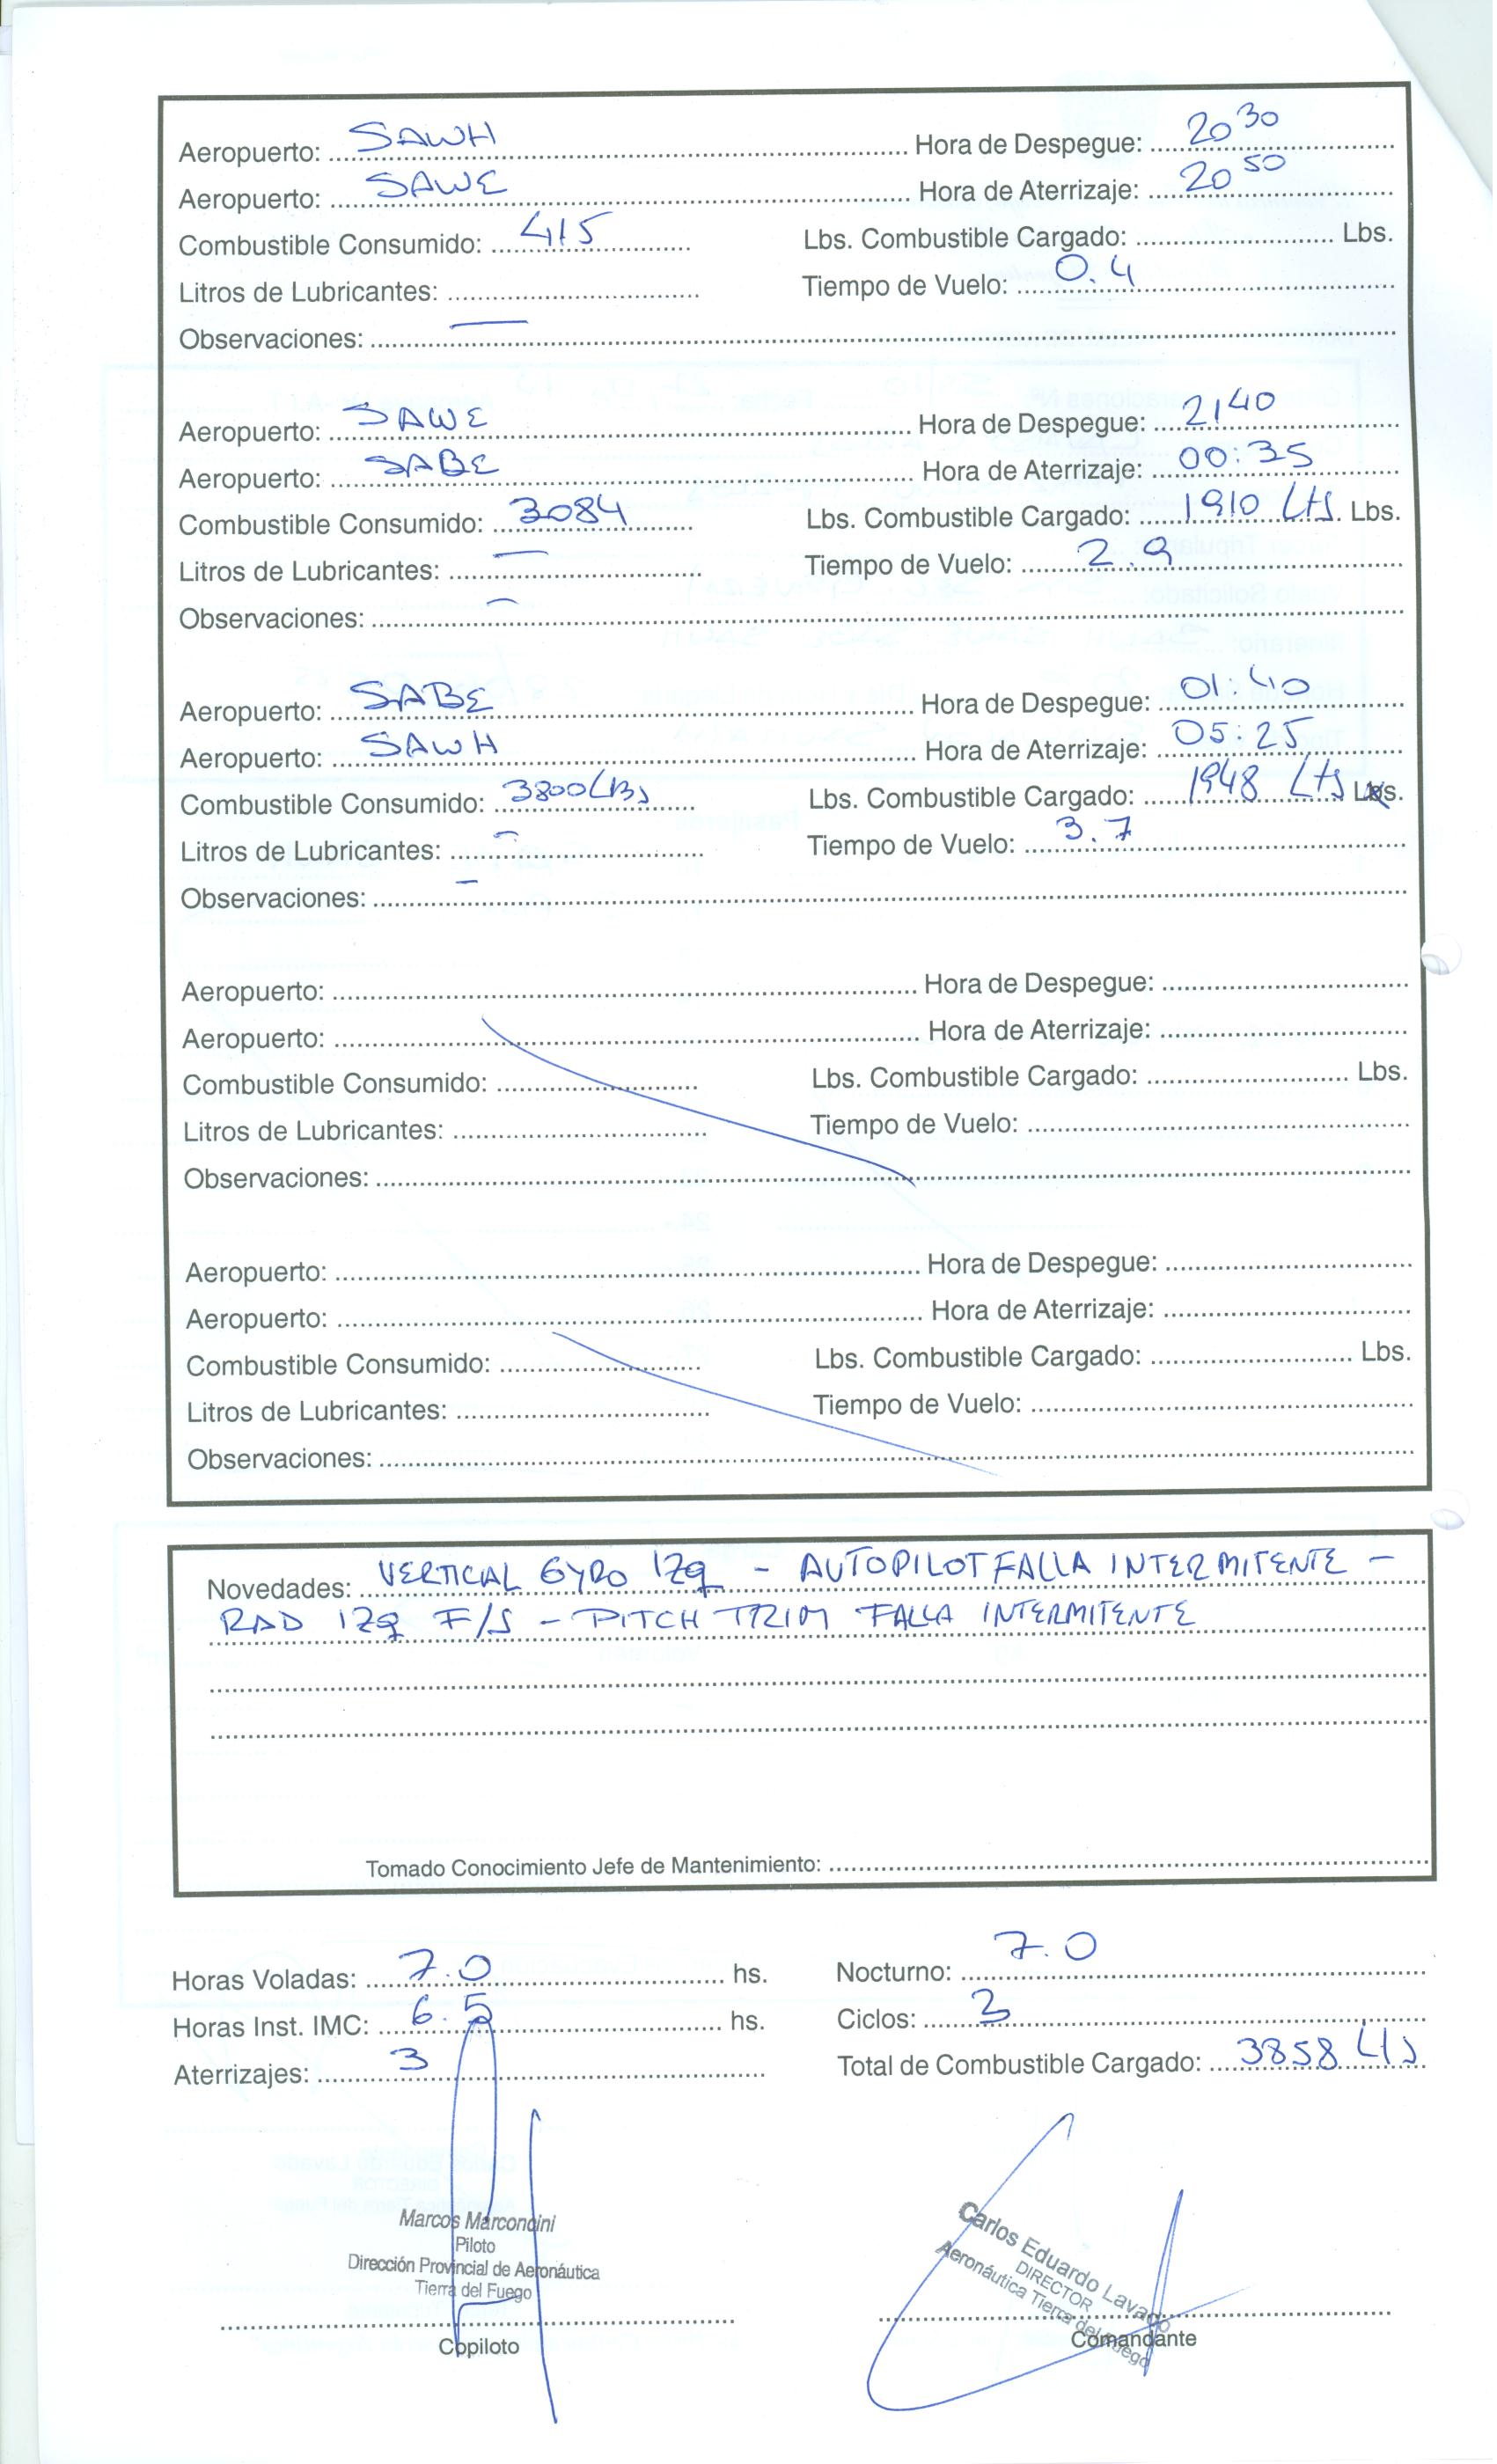 Aeropuerto: SAWH Hora de Despegue: 20 30
Aeropuerto: SAWE Hora de Aterrizaje: 20 50
Combustible Consumido: 415 Lbs. Combustible Cargado: Lbs.
Litros de Lubricantes: Tiempo de Vuelo: 0.4
Observaciones: —
Aeropuerto: SAWE Hora de Despegue: 21 40
Aeropuerto: SABE Hora de Aterrizaje: 00:35
Combustible Consumido: 3084 Lbs. Combustible Cargado: 1910 Lts. Lbs.
Litros de Lubricantes: — Tiempo de Vuelo: 2.9
Observaciones: —
Aeropuerto: SABE Hora de Despegue: 01:40
Aeropuerto: SAWH Hora de Aterrizaje: 05:25
Combustible Consumido: 3800 LBs Lbs. Combustible Cargado: 1948 Lts Lbs.
Litros de Lubricantes: — Tiempo de Vuelo: 3.7
Observaciones: —
Aeropuerto: Hora de Despegue:
Aeropuerto: Hora de Aterrizaje:
Combustible Consumido: Lbs. Combustible Cargado: Lbs.
Litros de Lubricantes: Tiempo de Vuelo:
Observaciones:
Aeropuerto: Hora de Despegue:
Aeropuerto: Hora de Aterrizaje:
Combustible Consumido: Lbs. Combustible Cargado: Lbs.
Litros de Lubricantes: Tiempo de Vuelo:
Observaciones:
Novedades: VERTICAL GYRO IZQ - AUTOPILOT FALLA INTERMITENTE -
RAD IZQ F/S - PITCH TRIM FALLA INTERMITENTE
Tomado Conocimiento Jefe de Mantenimiento:
Horas Voladas: 7.0 hs. Nocturno: 7.0
Horas Inst. IMC: 6.5 hs. Ciclos: 3
Aterrizajes: 3 Total de Combustible Cargado: 3858 Lts
Marcos Marconcini
Piloto
Dirección Provincial de Aeronáutica
Tierra del Fuego
Copiloto
Carlos Eduardo Lavado
DIRECTOR
Aeronáutica Tierra del Fuego
Comandante